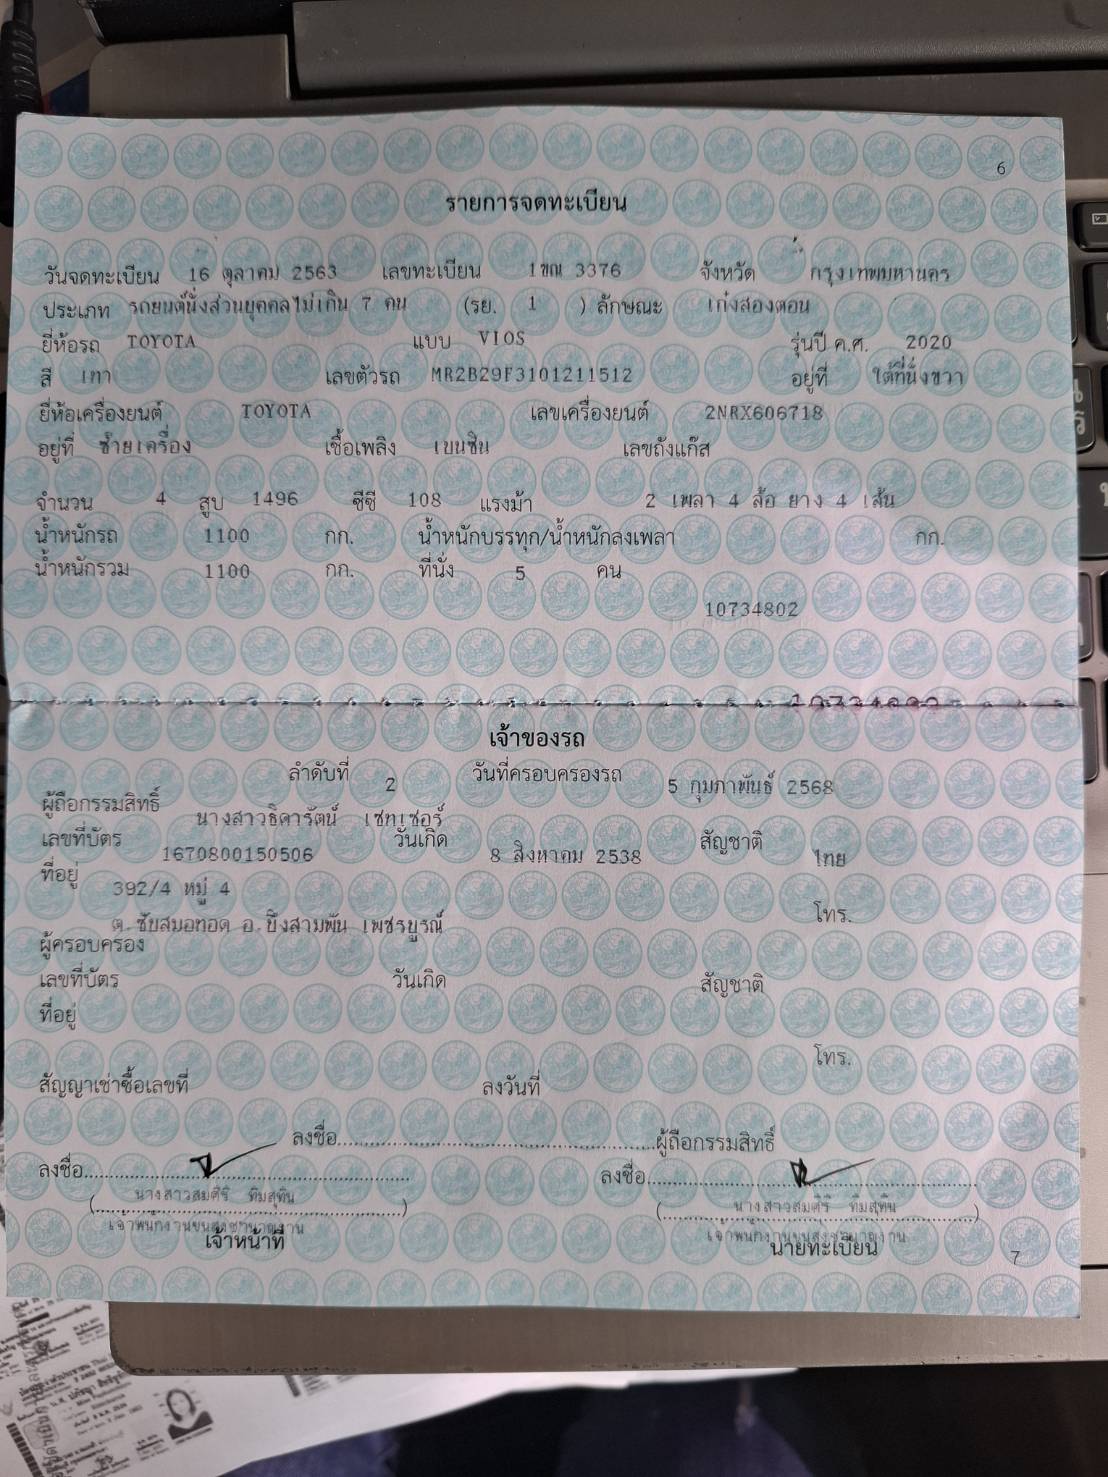 6
รายการจดทะเบียน
วันจดทะเบียน 16 ตุลาคม 2563 เลขทะเบียน 1ขณ 3376 จังหวัด กรุงเทพมหานคร
ประเภท รถยนต์นั่งส่วนบุคคลไม่เกิน 7 คน (รย. 1 ) ลักษณะ เก๋งสองตอน
ยี่ห้อรถ TOYOTA แบบ VIOS รุ่นปี ค.ศ. 2020
สี เทา เลขตัวรถ MR2B29F3101211512 อยู่ที่ ใต้ที่นั่งขวา
ยี่ห้อเครื่องยนต์ TOYOTA เลขเครื่องยนต์ 2NRX606718
อยู่ที่ ซ้ายเครื่อง เชื้อเพลิง เบนซิน เลขถังแก๊ส
จำนวน 4 สูบ 1496 ซีซี 108 แรงม้า 2 เพลา 4 ล้อ ยาง 4 เส้น
น้ำหนักรถ 1100 กก. น้ำหนักบรรทุก/น้ำหนักลงเพลา กก.
น้ำหนักรวม 1100 กก. ที่นั่ง 5 คน
10734802
10734802
เจ้าของรถ
ลำดับที่ 2 วันที่ครอบครองรถ 5 กุมภาพันธ์ 2568
ผู้ถือกรรมสิทธิ์ นางสาวธิดารัตน์ เชทเชอร์
เลขที่บัตร 1670800150506 วันเกิด 8 สิงหาคม 2538 สัญชาติ ไทย
ที่อยู่ 392/4 หมู่ 4
ต.ซับสมอทอด อ.บึงสามพัน เพชรบูรณ์ โทร.
ผู้ครอบครอง
เลขที่บัตร วันเกิด สัญชาติ
ที่อยู่
โทร.
สัญญาเช่าซื้อเลขที่ ลงวันที่
ลงชื่อ............................................ผู้ถือกรรมสิทธิ์
ลงชื่อ............................................ ลงชื่อ............................................
(นางสาวสมศิริ ทิมสุทิน) (นางสาวสมศิริ ทิมสุทิน)
เจ้าพนักงานขนส่งชำนาญงาน เจ้าพนักงานขนส่งชำนาญงาน
เจ้าหน้าที่ นายทะเบียน
7